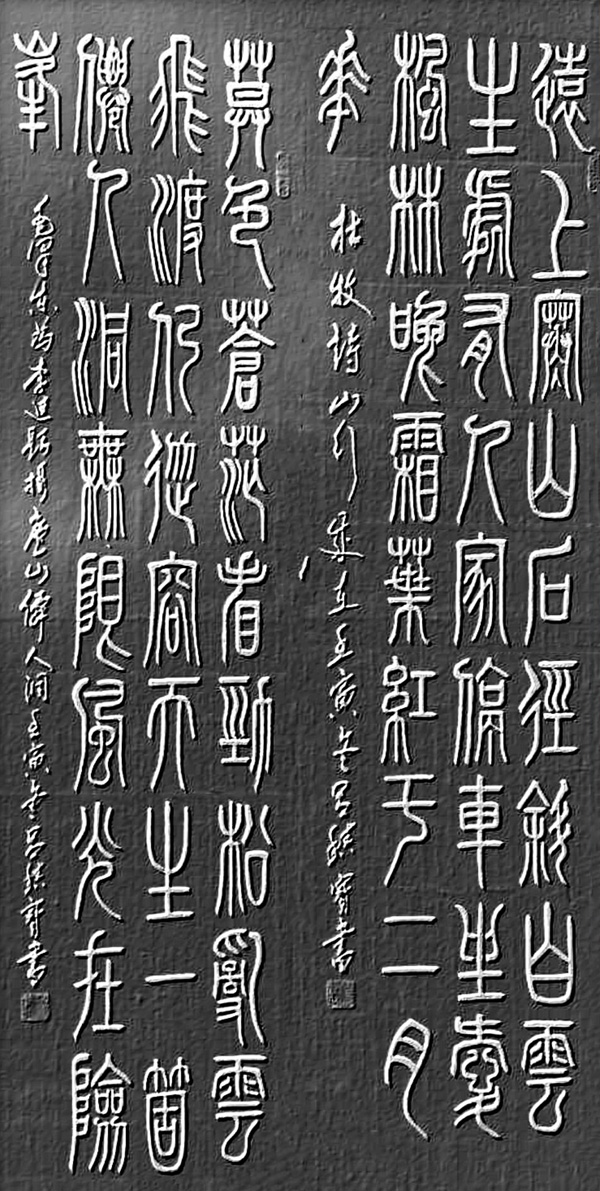 遠上寒山石徑斜白雲
生處有人家停車坐愛
楓林晚霜葉紅于二月
華
杜牧詩山行 歲在壬寅冬呂書
莫色蒼茫看勁松亂雲
飛渡仍從容天生一箇
僊人洞無限風光在險
峯
毛澤東為李進題攝廬山僊人洞壬寅冬呂書